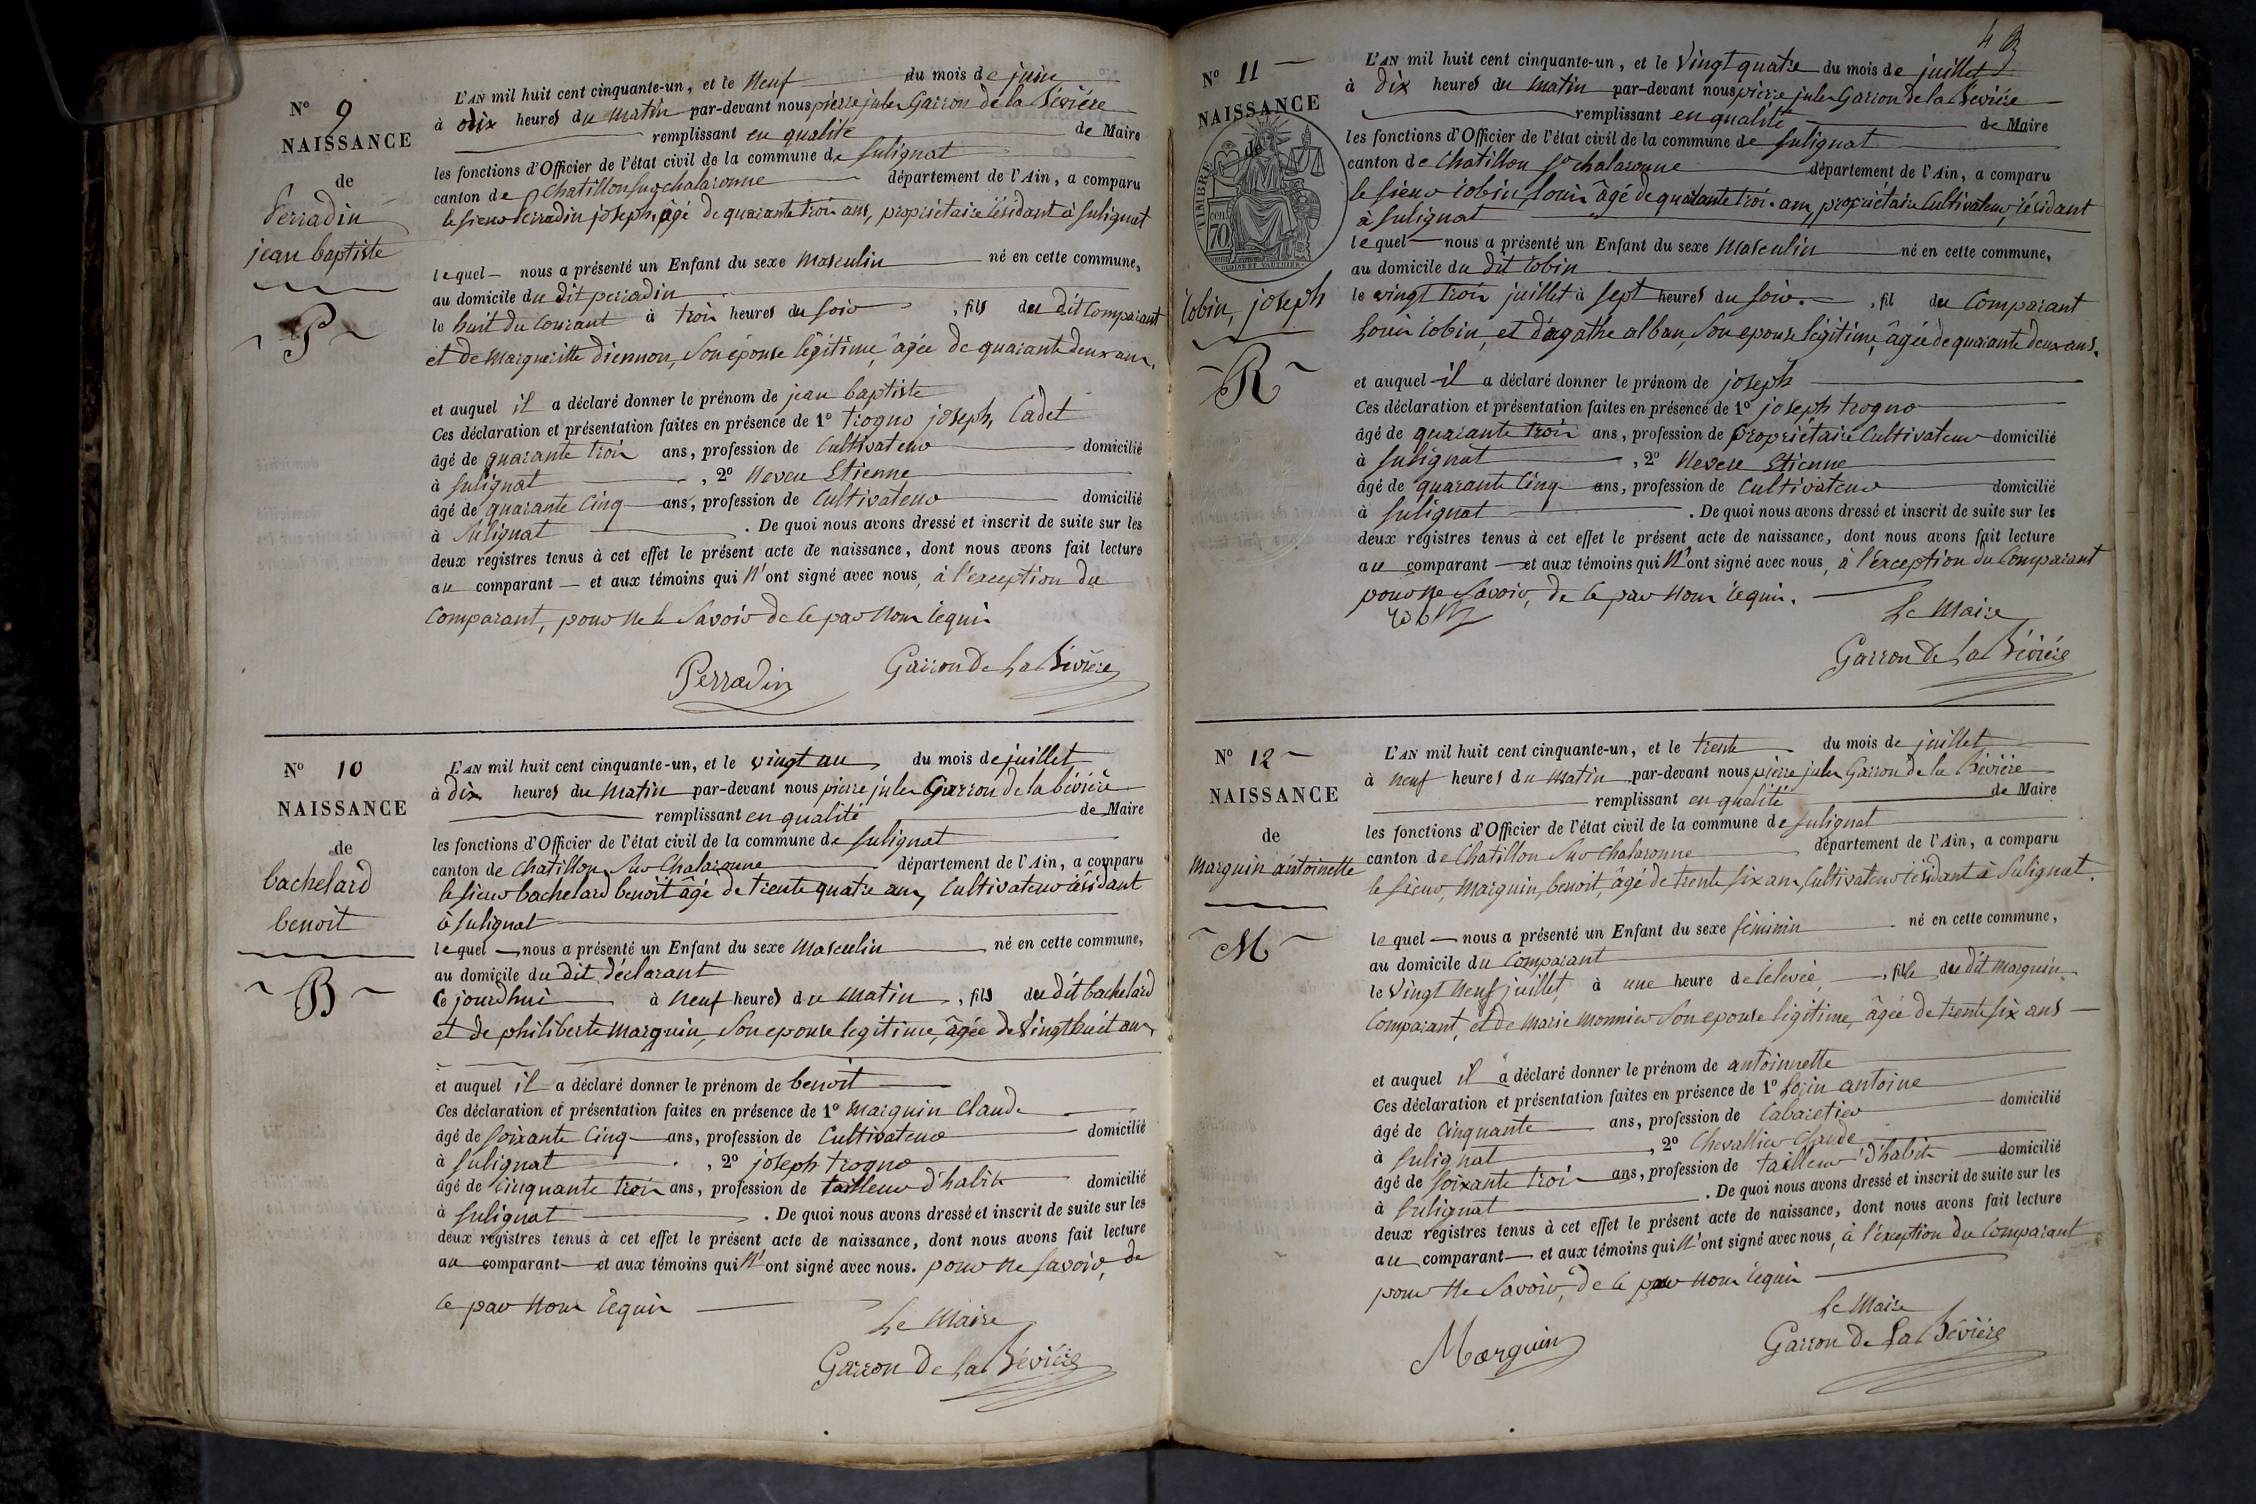 N° 9
NAISSANCE
de
Perradin
jean baptiste
P
L'AN mil huit cent cinquante-un, et le neuf du mois de juin
à dix heures du matin par-devant nous pierre jules Garron de la Bévière
remplissant en qualité de Maire
les fonctions d'Officier de l'état civil de la commune de Sulignat
canton de Chatillon sur chalaronne département de l'Ain, a comparu
le sieur Perradin joseph, âgé de quarante trois ans, propriétaire résidant à Sulignat
lequel nous a présenté un Enfant du sexe masculin né en cette commune,
au domicile du dit perradin
le huit du courant à trois heures du soir, fils du dit comparant
et de Marguerite diennon, son épouse légitime, âgée de quarante deux ans,
et auquel il a déclaré donner le prénom de jean baptiste
Ces déclaration et présentation faites en présence de 1° trogno joseph, Cadet
âgé de quarante trois ans, profession de Cultivateur domicilié
à Sulignat, 2° Neveu Etienne
âgé de quarante cinq ans, profession de Cultivateur domicilié
à Sulignat. De quoi nous avons dressé et inscrit de suite sur les
deux registres tenus à cet effet le présent acte de naissance, dont nous avons fait lecture
au comparant et aux témoins qui n'ont signé avec nous, à l'exception du
Comparant, pour ne le savoir de ce par nous requis
Perradin Garron de La Bévière
N° 10
NAISSANCE
de
bachelard
benoit
B
L'AN mil huit cent cinquante-un, et le vingt un du mois de juillet
à dix heures du matin par-devant nous pierre jules Garron de la bévière
remplissant en qualité de Maire
les fonctions d'Officier de l'état civil de la commune de Sulignat
canton de Chatillon sur Chalaronne département de l'Ain, a comparu
le sieur bachelard benoit âgé de trente quatre ans, Cultivateur résidant
à Sulignat
lequel nous a présenté un Enfant du sexe masculin né en cette commune,
au domicile du dit déclarant
Ce jourd'hui à neuf heures du matin, fils du dit bachelard
et de philiberte marguin, son epouse legitime, âgée de vingt huit ans,
et auquel il a déclaré donner le prénom de benoit
Ces déclaration et présentation faites en présence de 1° marguin Claude
âgé de soixante cinq ans, profession de Cultivateur domicilié
à Sulignat, 2° joseph trogno
âgé de cinquante trois ans, profession de tailleur d'habits domicilié
à Sulignat. De quoi nous avons dressé et inscrit de suite sur les
deux registres tenus à cet effet le présent acte de naissance, dont nous avons fait lecture
au comparant et aux témoins qui n'ont signé avec nous. pour ne savoir, de
ce par nous requis
Le Maire
Garron de La Bévière
N° 11
NAISSANCE
de
TIMBRE
cent
70
robin, joseph
R
L'AN mil huit cent cinquante-un, et le vingt quatre du mois de juillet
à dix heures du matin par-devant nous pierre jules Garron de la Bévière
remplissant en qualité de Maire
les fonctions d'Officier de l'état civil de la commune de Sulignat
canton de Chatillon sr chalaronne département de l'Ain, a comparu
le sieur robin, Louis âgé de quarante trois ans, propriétaire Cultivateur, résidant
à Sulignat
lequel nous a présenté un Enfant du sexe masculin né en cette commune,
au domicile du dit robin
le vingt trois juillet à sept heures du soir, fil du Comparant
Louis robin, et d'agathe alban, son epouse légitime, âgée de quarante deux ans.
et auquel il a déclaré donner le prénom de joseph
Ces déclaration et présentation faites en présence de 1° joseph trogno
âgé de quarante trois ans, profession de propriétaire Cultivateur domicilié
à Sulignat, 2° Neveu Etienne
âgé de quarante cinq ans, profession de Cultivateur domicilié
à Sulignat. De quoi nous avons dressé et inscrit de suite sur les
deux registres tenus à cet effet le présent acte de naissance, dont nous avons fait lecture
au comparant et aux témoins qui n'ont signé avec nous, à l'exception du Comparant
pour ne savoir, de ce par nous requis.
Le Maire
Garron de La Bévière
N° 12
NAISSANCE
de
Marguin antoinette
M
L'AN mil huit cent cinquante-un, et le trente du mois de juillet
à neuf heures du matin par-devant nous pierre jules Garron de la Bévière
remplissant en qualité de Maire
les fonctions d'Officier de l'état civil de la commune de Sulignat
canton de Chatillon sur chalaronne département de l'Ain, a comparu
le sieur, Marguin, benoit, âgé de trente six ans, Cultivateur résidant à Sulignat.
lequel nous a présenté un Enfant du sexe féminin né en cette commune,
au domicile du Comparant
le vingt neuf juillet à une heure de relevée, fille du dit marguin
Comparant, et de marie monnier son epouse légitime, âgée de trente six ans
et auquel il a déclaré donner le prénom de antoinnette
Ces déclaration et présentation faites en présence de 1° antoine
âgé de cinquante ans, profession de Cabaretier domicilié
à Sulignat, 2° Chevallier Claude
âgé de soixante trois ans, profession de tailleur d'habits domicilié
à Sulignat. De quoi nous avons dressé et inscrit de suite sur les
deux registres tenus à cet effet le présent acte de naissance, dont nous avons fait lecture
au comparant et aux témoins qui n'ont signé avec nous, à l'exception du Comparant
pour ne savoir, de ce par nous requis
Le Maire
Marguin Garron de La Bévière